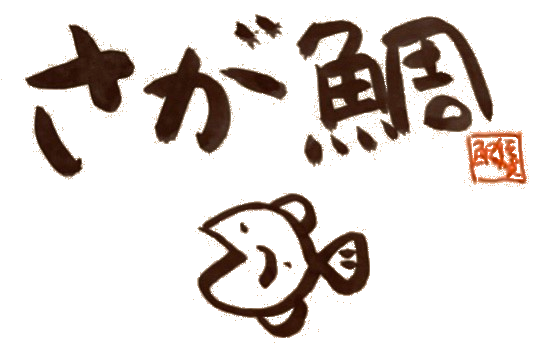 さが鯛